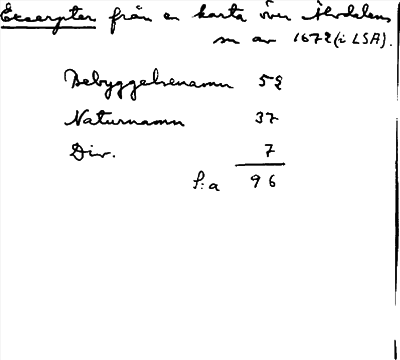 Excerpter från en karta över Älvdalens
sn av 1672 (i LSA).
Bebyggelsenamn 52
Naturnamn 37
Div. 7
S:a 96